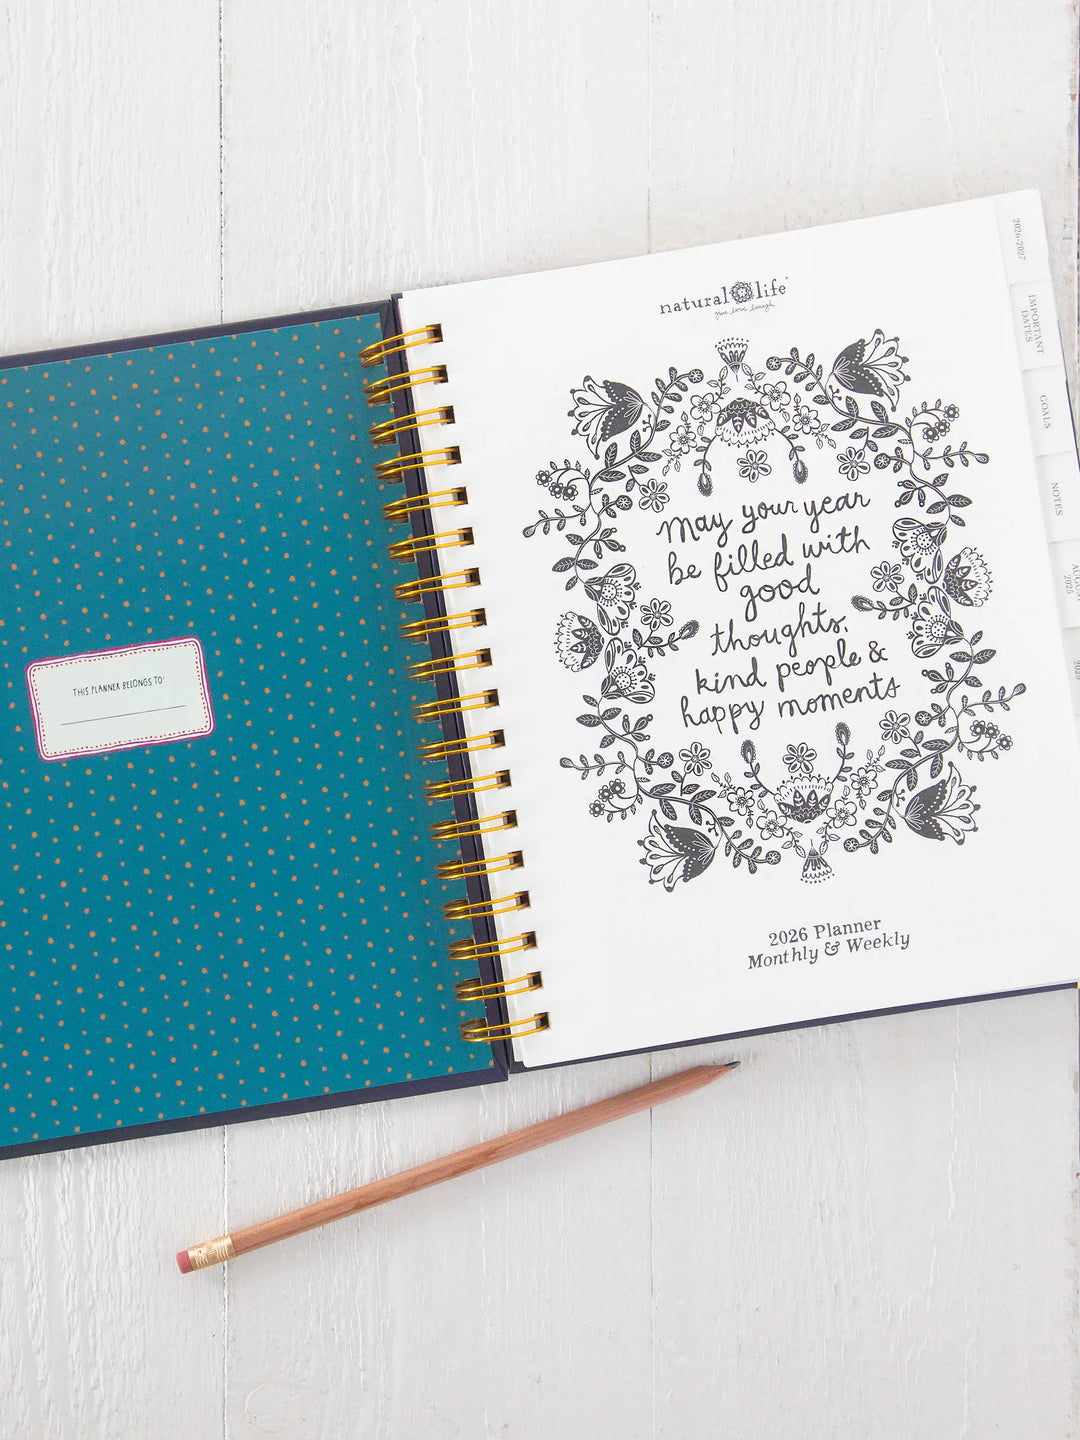 THIS PLANNER BELONGS TO:
natural life
give love laugh
May your year
be filled with
good
thoughts,
kind people &
happy moments
2026 Planner
Monthly & Weekly
2026-2027
IMPORTANT
DATES
GOALS
NOTES
AUGUST
2025